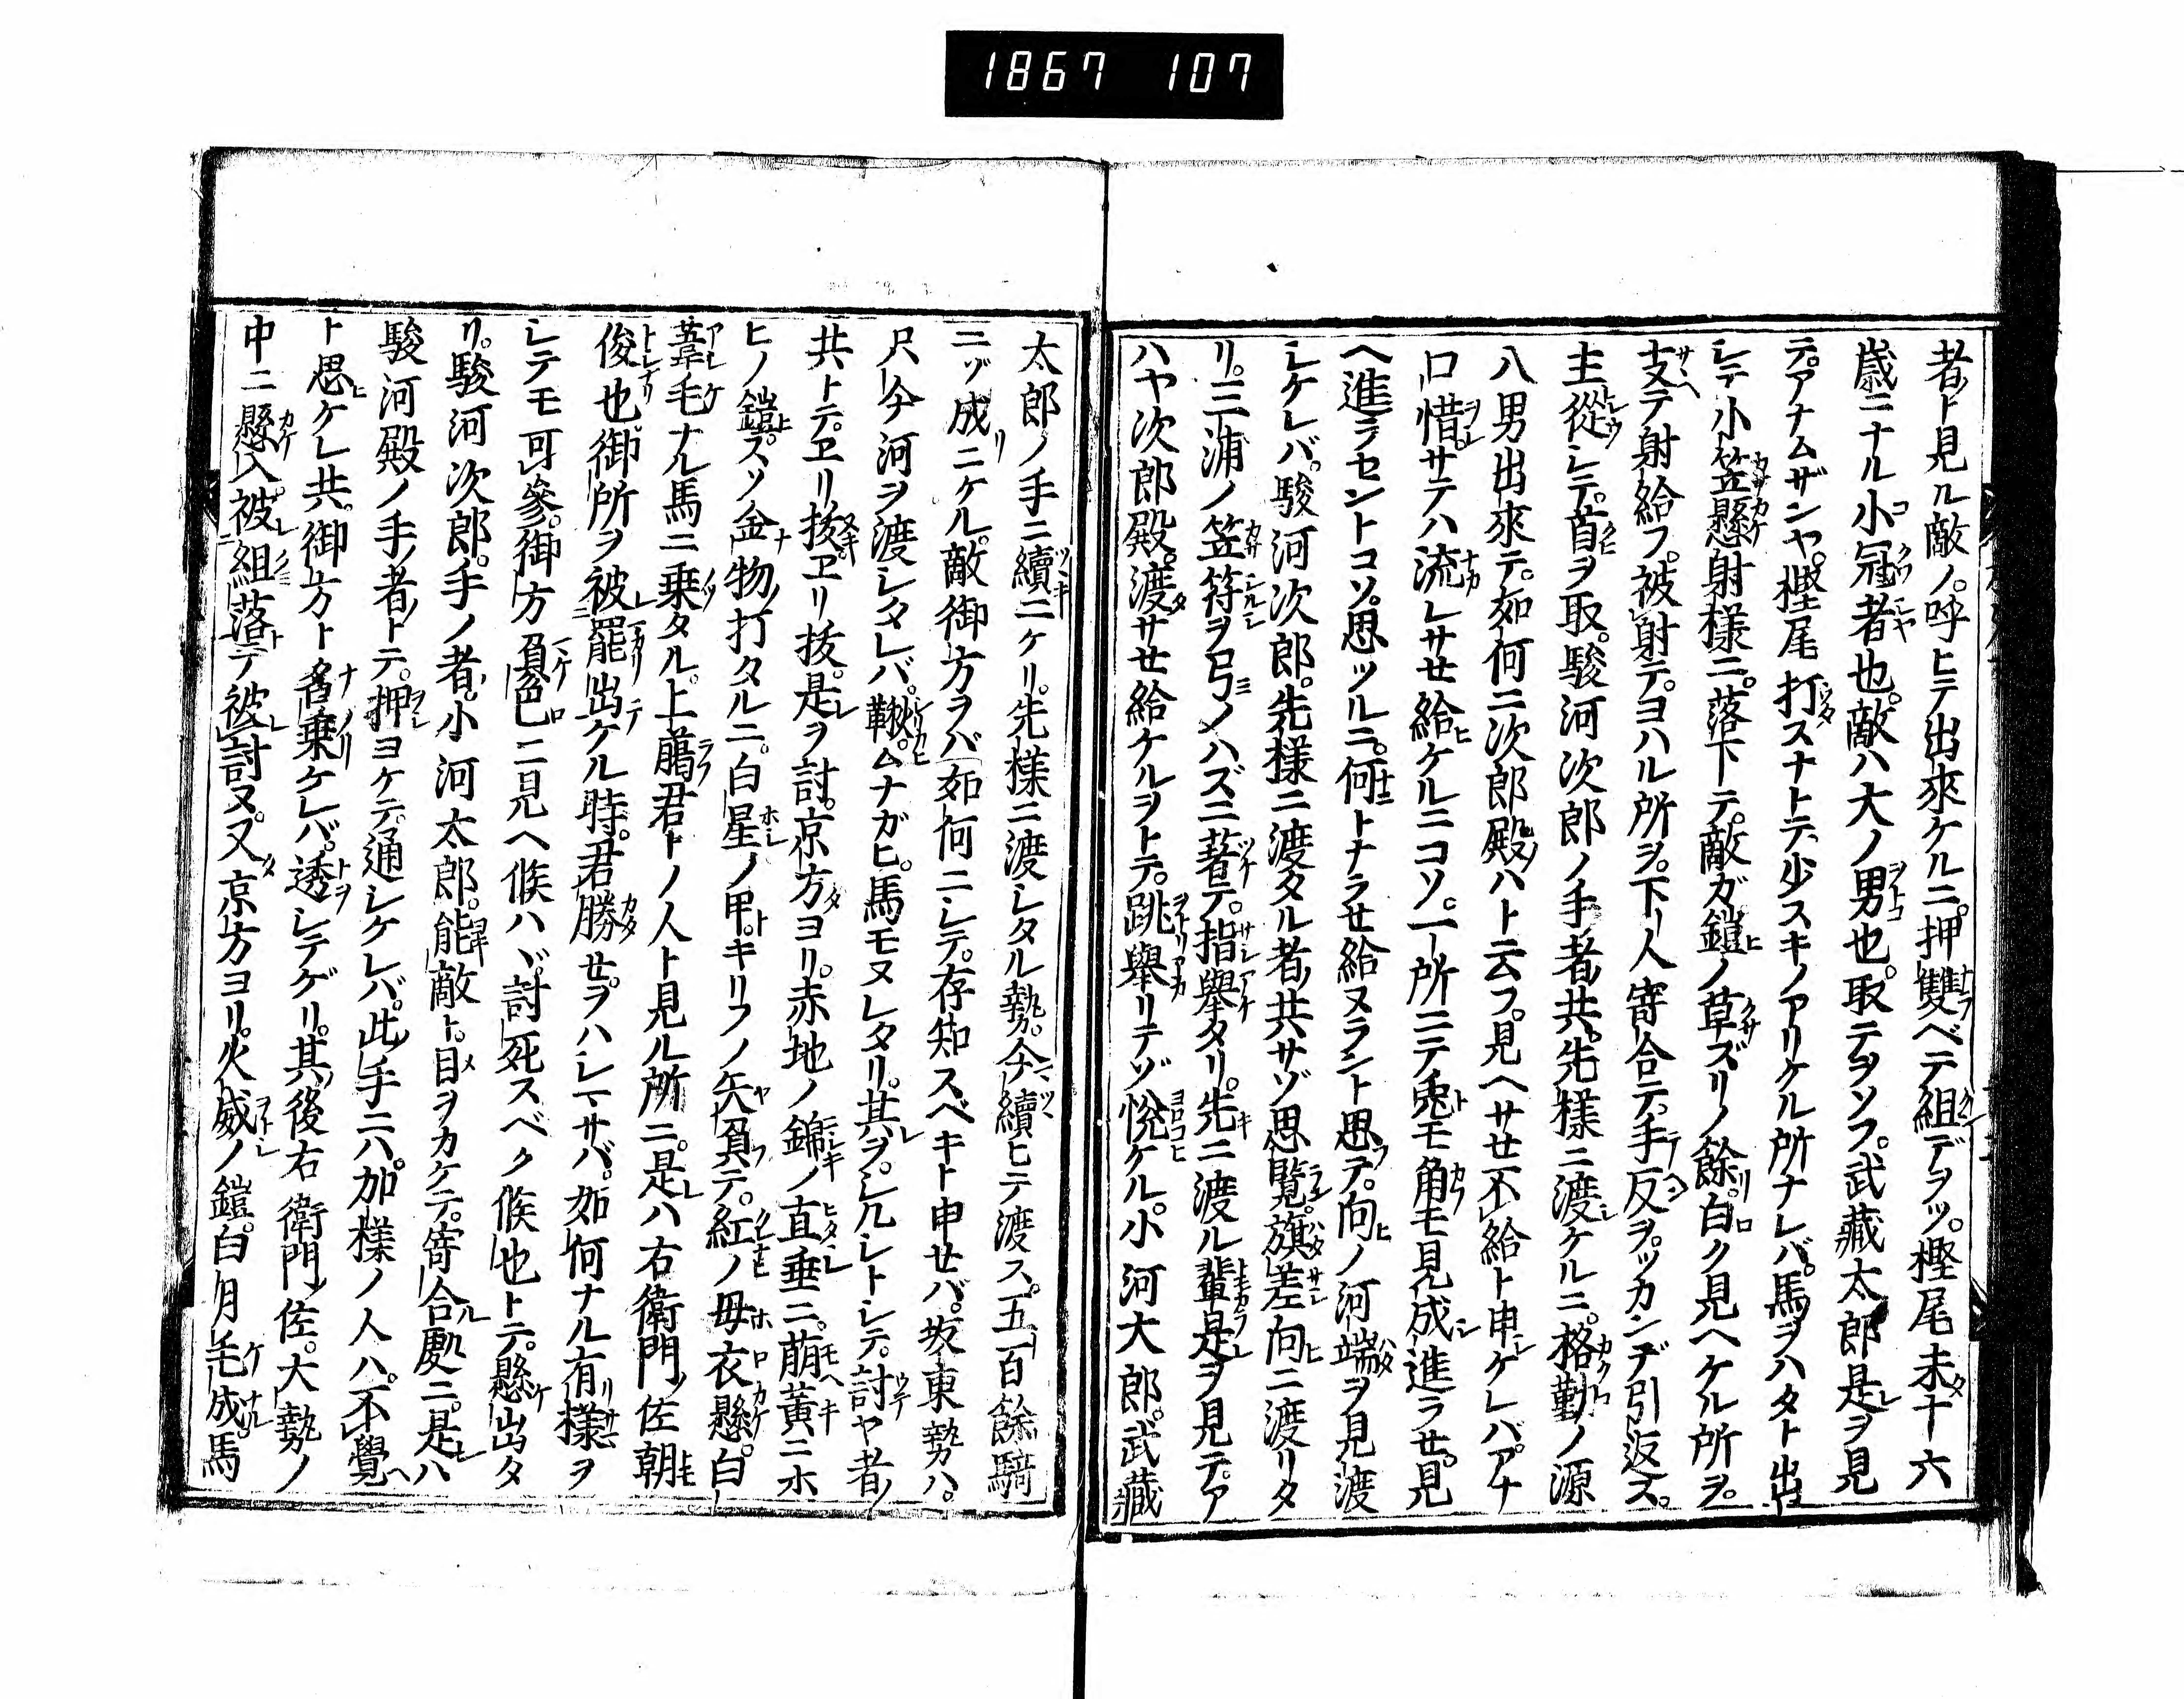 1867 107
者ト見ル敵ノ。呼ヒテ出來ケルニ。押雙ベテ組デヲツ。樫尾未十六
歳ニナル小冠者也。敵ハ大ノ男也。取テヲソフ。武藏太郎是ヲ見
テ。アナムザンヤ。樫尾打スナトテ。少スキノアリケル所ナレバ。馬ヲハタト出
シテ小笠懸射様ニ。落下テ。敵ガ鎧ノ草ズリノ餘。白ク見ヘケル所ヲ。
支テ射給フ。被射テ。ヨハル所ヲ。下人寄合テ。手反ヲ。ツカンデ引返ス。
主從シテ。首ヲ取。駿河次郎ノ手者共。先様ニ渡ケルニ。格勤ノ源
八男出來テ。如何ニ次郎殿ハト云フ。見ヘサせ不給ト申ケレバ。アナ
口惜。サテハ流レサせ給ケルニコソ。一所ニテ兎モ角モ見成進ラせ。見
ヘ進ラセントコソ。思ツルニ。何トナラせ給ヌラント思テ。向ノ河端ヲ見渡
シケレバ。駿河次郎。先様ニ渡タル者共サゾ思覽。旗差向ニ渡リタ
リ。三浦ノ笠符ヲ弓ノハズニ著テ。指擧タリ。先ニ渡ル輩是ヲ見テ。ア
ハヤ次郎殿。渡サせ給ケルヲトテ。跳擧リテゾ悅ケル。小河大郎。武藏
太郎ノ手ニ續ニケリ。先様ニ渡シタル勢。今續ヒテ渡ス。五百餘騎
ニゾ成ニケル。敵御方ヲバ如何ニシテ。存知スベキト申せバ。坂東勢ハ。
只今河ヲ渡シタレバ。鞦。ムナガヒ。馬モヌレタリ。其ヲ。シルシトシテ。討ヤ者
共トテ。ヱリ拔ヱリ拔。是ヲ討。京方ヨリ。赤地ノ錦ノ直垂ニ。萠黃ニホ
ヒノ鎧。スソ金物打タルニ。白星ノ甲。キリフノ矢負テ。紅ノ母衣懸。白
葦毛ナル馬ニ乗タル。上﨟君トノ人ト見ル所ニ。是ハ右衛門佐朝
俊也。御所ヲ被罷出ケル時。君勝せヲハシマサバ。如何ナル有様ヲ
シテモ可參。御方負色ニ見ヘ候ハヾ。討死スベク候也トテ。懸出タ
リ。駿河次郎。手ノ者。小河太郎。能敵ト。目ヲカケテ。寄合處ニ。是ハ
駿河殿ノ手者トテ。押ヨケテ。通シケレバ。此手ニハ。加様ノ人ハ。不覺
ト思ケレ共。御方ト名乗ケレバ。透シテゲリ。其後右衛門佐。大勢ノ
中ニ懸入被組落テ被討ヌ。又京方ヨリ。火威ノ鎧。白月毛成馬